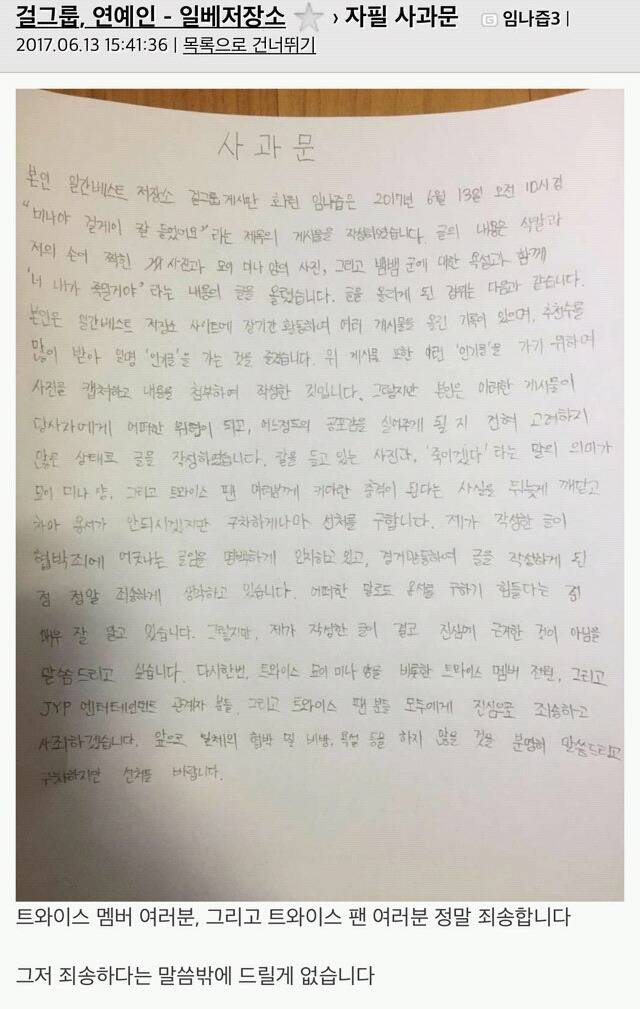 걸그룹, 연예인 - 일베저장소 › 자필 사과문 G 임나즙3 |
2017.06.13 15:41:36 | 목록으로 건너뛰기
사과문
본인 일간베스트 저장소 걸그룹게시판 회원 임나즙은 2017년 6월 13일 오전 10시경
"미나야 걸게이 칼 들었어요"라는 제목의 게시물을 작성하였습니다. 글의 내용은 식칼과
저의 손이 찍힌 사진과 묘이 미나 양의 사진, 그리고 뱀뱀 군에 대한 욕설과 함께
'너 내가 죽일거야' 라는 내용의 글을 올렸습니다. 글을 올리게 된 경위는 다음과 같습니다.
본인은 일간베스트 저장소 사이트에 장기간 활동하며 여러 게시물을 올린 기록이 있으며, 추천수를
많이 받아 일명 '인기글'을 가는 것을 즐겼습니다. 위 게시물 또한 이런 '인기글'을 가기 위하여
사진을 캡쳐하고 내용을 첨부하여 작성한 것입니다. 그렇지만 본인은 이러한 게시물이
당사자에게 어떠한 위협이 되고, 어느정도의 공포감을 심어주게 될 지 전혀 고려하지
않은 상태로 글을 작성하였습니다. 칼을 들고 있는 사진과, '죽이겠다' 라는 말의 의미가
묘이 미나 양, 그리고 트와이스 팬 여러분께 커다란 충격이 된다는 사실을 뒤늦게 깨닫고
차마 용서가 안되시겠지만 구차하게나마 선처를 구합니다. 제가 작성한 글이
협박죄에 어긋나는 글임을 명백하게 인지하고 있고, 경거망동하여 글을 작성하게 된
점 정말 죄송하게 생각하고 있습니다. 어떠한 말로도 용서를 구하기 힘들다는 점
매우 잘 알고 있습니다. 그렇지만, 제가 작성한 글이 결코 진심에 근거한 것이 아님을
말씀드리고 싶습니다. 다시한번, 트와이스 묘이 미나 양을 비롯한 트와이스 멤버 전원, 그리고
JYP 엔터테인먼트 관계자 분들, 그리고 트와이스 팬 분들 모두에게 진심으로 죄송하고
사죄하겠습니다. 앞으로 일체의 협박 및 비방, 욕설 등을 하지 않을 것을 분명히 말씀드리고
구차하지만 선처를 바랍니다.
트와이스 멤버 여러분, 그리고 트와이스 팬 여러분 정말 죄송합니다
그저 죄송하다는 말씀밖에 드릴게 없습니다